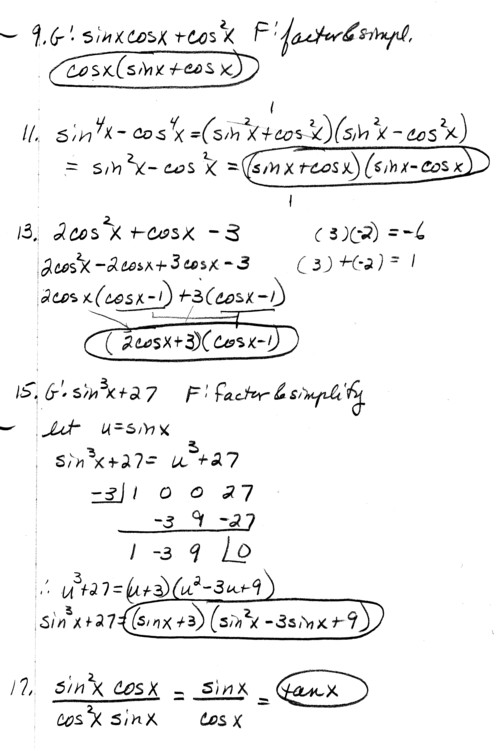 9. G: sinxcosx + cos²x F: factor & simpl.
cosx(sinx + cosx)
1
11. sin⁴x - cos⁴x = (sin²x + cos²x)(sin²x - cos²x)
= sin²x - cos²x = (sinx + cosx)(sinx - cosx)
1
13. 2cos²x + cosx - 3 (3)(-2) = -6
2cos²x - 2cosx + 3cosx - 3 (3) + (-2) = 1
2cosx(cosx - 1) + 3(cosx - 1)
(2cosx + 3)(cosx - 1)
15. G: sin³x + 27 F: factor & simplify
let u = sinx
sin³x + 27 = u³ + 27
-3| 1 0 0 27
-3 9 -27
1 -3 9 |0
∴ u³ + 27 = (u + 3)(u² - 3u + 9)
sin³x + 27 = (sinx + 3)(sin²x - 3sinx + 9)
17. sin²x cosx / cos²x sinx = sinx / cosx = tanx